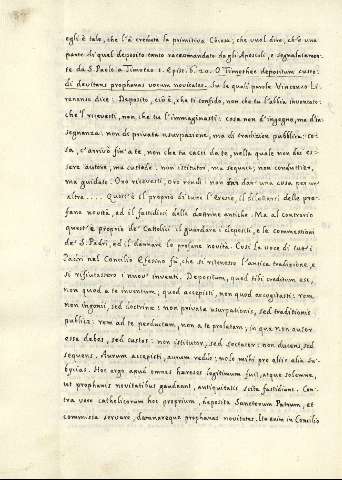 egli è tale, che l'à creduta la primitiva Chiesa, che vuol dire, ch'è una
parte di quel deposito tanto raccomandato dagli Apostoli, e segnalatamen-
te da S. Paolo a Timoteo 1. Epist. 6. 20. O Timothee depositum custo-
di devitans prophanas vocum novitates. Su le quali parole Vincenzo Li-
rinense dice: Deposito, ciò è, che ti confido, non che tu l'abbia inventato:
che 'l ricevesti, non che tu l'immaginasti: cosa non d'ingegno, ma d'in-
segnanza: non di privata usurpazione, ma di tradizion pubblica: co-
sa, c'arrivò fin'a te, non che tu cacci da te, nella quale non dei es-
sere autore, ma custode: non istitutor, ma seguace, non conduttier,
ma guidato. Oro ricevesti, oro rendi: non dar una cosa per un'
altra.... Quest'è il proprio di tutte l'Eresie, il dilettarsi delle pro-
fane novità, ed il fastidirsi delle dottrine antiche. Ma al contrario
quest'è proprio de' Cattolici il guardare i depositi, e le commessioni
de' S. Padri, ed il dannare le profane novità. Così la voce di tutt'i
Padri nel Concilio Efesino fù, che si ritenesse l'antica tradizione, e
si rifiutassero i nuov' inventi. Depositum, quod tibi creditum est,
non quod a te inventum; quod accepisti, non quod excogitasti: rem
non ingenii, sed doctrinæ: non privatæ usurpationis, sed traditionis
publicæ: rem ad te perductam, non a te prolatam; in qua non autor
esse debes, sed custos: non institutor, sed sectator: non ducens, sed
sequens. Aurum accepisti, aurum redde; nolo mihi pro aliis alia su-
bjicias. Hoc ergo apud omnes hæreses legitimum fuit, atque solemne,
ut prophanis novitatibus gaudeant, antiquitatis scita fastidiant. Con-
tra vero catholicorum hoc proprium, deposita Sanctorum Patrum, et
commissa servare, damnareque prophanas novitates. Ita enim in Concilio